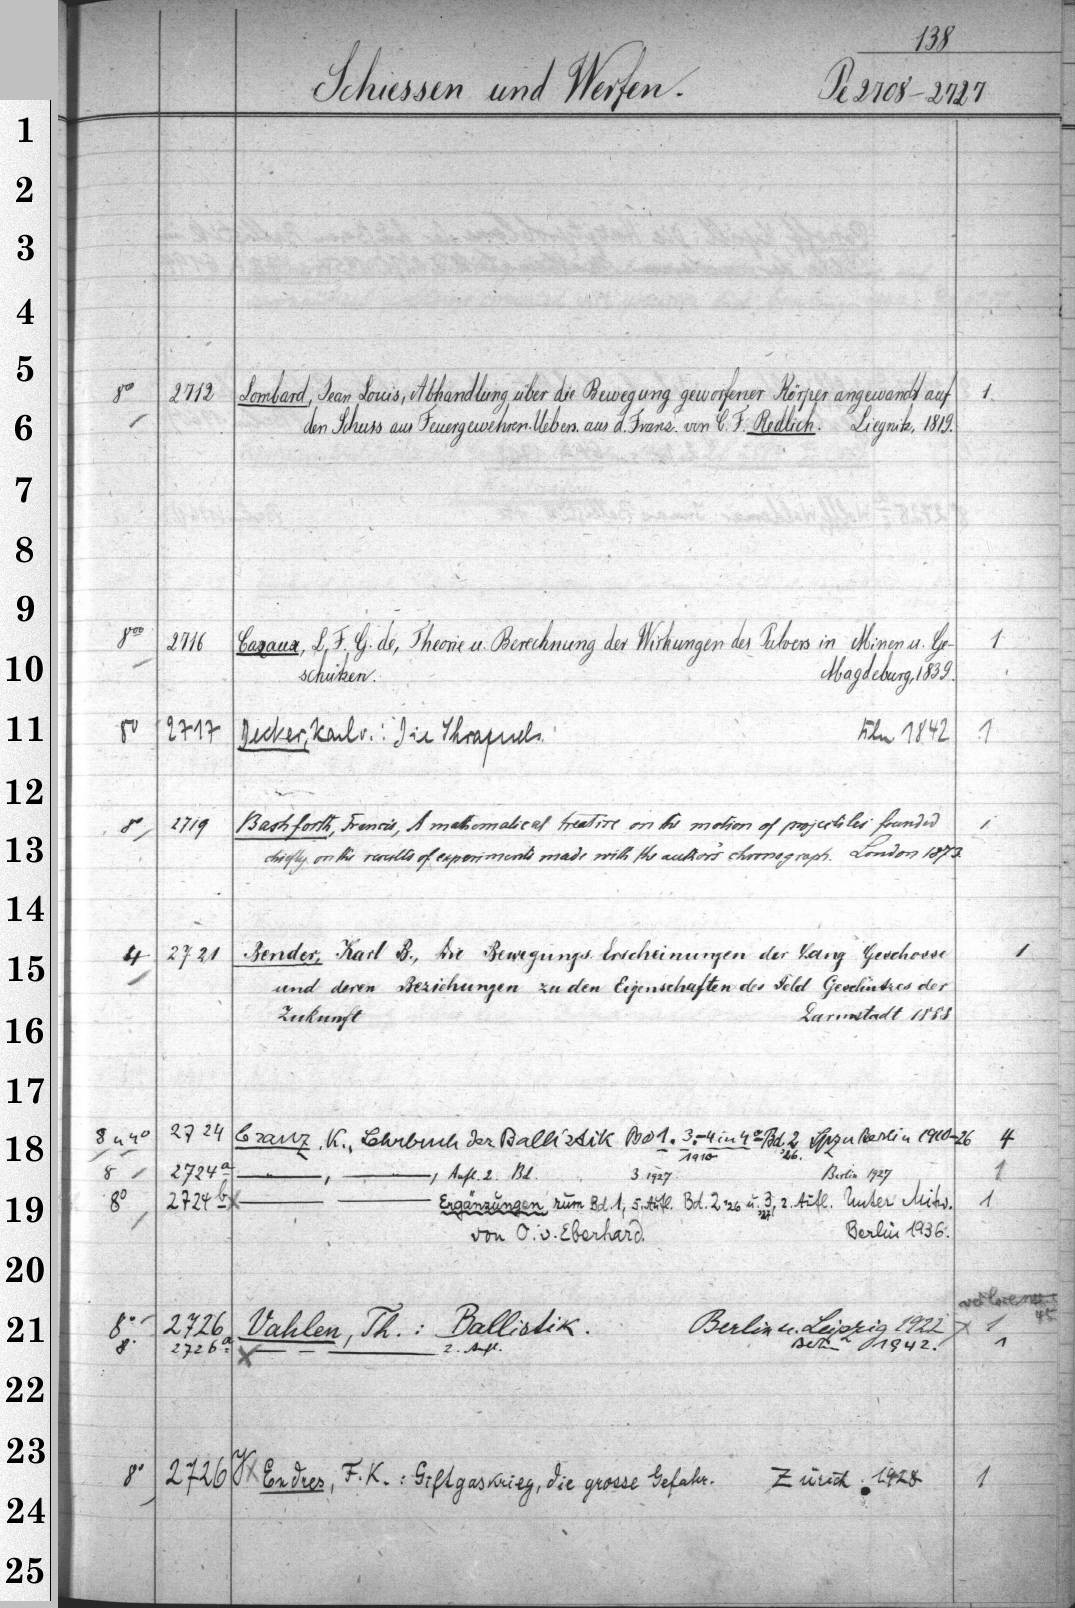 138
Schiessen und Werfen. Pe 2708-2727
1
2
3
4
5
8° 2712 Lombard, Jean Louis, Abhandlung über die Bewegung geworfener Körper angewandt auf 1
6 den Schuss aus Feuergewehren. Uebers. aus d. Franz. von C. F. Redlich. Liegnitz, 1819.
7
8
9
8° 2716 Cazaux, L. F. G. de, Theorie u. Berechnung der Wirkungen des Pulvers in Minen u. Ge- 1
10 schützen. Magdeburg, 1839.
11 8° 2717 Decker, Karl v.: Die Shrapnels. 1842 1
12
8° 2719 Bashforth, Francis, A mathematical treatise on the motion of projectiles founded 1
13 chiefly on the results of experiments made with the author's chronograph. London 1873
14
15 4 2721 Bender, Karl B., Die Bewegungs-Erscheinungen der Lang Geschosse 1
und deren Beziehungen zu den Eigenschaften des Feld Geschützes der
16 Zukunft Darmstadt 1888
17
18 8 u 4° 2724 Cranz, K., Lehrbuch der Ballistik Bd 1. 3.-4 in 4° Bd. 2 Lpz u Berlin 1910-26 4
1910 '26.
8 2724a —, —, Aufl. 2. Bd. 3. 1927. Berlin 1927 1
19 8° 2724b x — — Ergänzungen zum Bd. 1, 5. Aufl. Bd. 2 '26 u. 3, 2. Aufl. Unter Mitw. 1
von O. v. Eberhard. Berlin 1936.
20
verloren
45
21 8° 2726 Vahlen, Th.: Ballistik. Berlin u. Leipzig 1922 x 1
8° 2726a x — — 2. Aufl. Berlin 1942. 1
22
23
8° 2726 x Endres, F. K.: Giftgaskrieg, die grosse Gefahr. Zürich. 1928 1
24
25